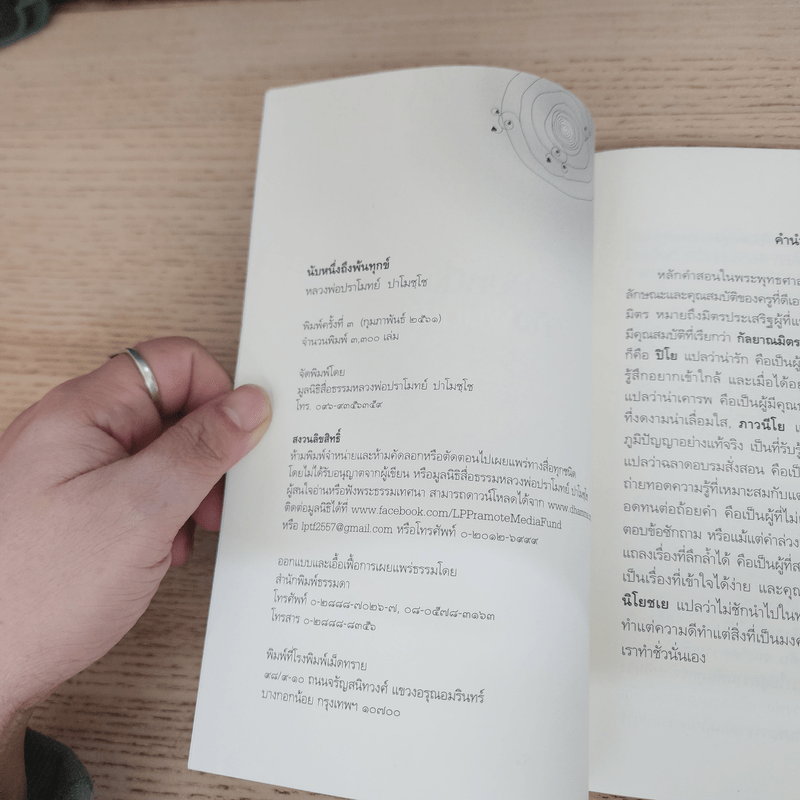 นับหนึ่งถึงพ้นทุกข์
หลวงพ่อปราโมทย์ ปาโมชฺโช
พิมพ์ครั้งที่ ๓ (กุมภาพันธ์ ๒๕๖๑)
จำนวนพิมพ์ ๓,๓๐๐ เล่ม
จัดพิมพ์โดย
มูลนิธิสื่อธรรมหลวงพ่อปราโมทย์ ปาโมชฺโช
โทร. ๐๙๖-๙๓๕๖๓๕๙
สงวนลิขสิทธิ์
ห้ามพิมพ์จำหน่ายและห้ามคัดลอกหรือตัดตอนไปเผยแพร่ทางสื่อทุกชนิด
โดยไม่ได้รับอนุญาตจากผู้เขียน หรือมูลนิธิสื่อธรรมหลวงพ่อปราโมทย์ ปาโมชฺโช
ผู้สนใจอ่านหรือฟังพระธรรมเทศนา สามารถดาวน์โหลดได้จาก
ติดต่อมูลนิธิได้ที่ www.facebook.com/LPPramoteMediaFund
หรือ lptf2557@gmail.com หรือโทรศัพท์ ๐-๒๐๑๒-๖๙๙๙
ออกแบบและเอื้อเฟื้อการเผยแพร่ธรรมโดย
สำนักพิมพ์ธรรมดา
โทรศัพท์ ๐-๒๘๘๘-๗๐๒๖-๗, ๐๘-๐๕๗๘-๓๑๖๓
โทรสาร ๐-๒๘๘๘-๘๓๕๖
พิมพ์ที่โรงพิมพ์เม็ดทราย
๙๘/๙-๑๐ ถนนจรัญสนิทวงศ์ แขวงอรุณอมรินทร์
บางกอกน้อย กรุงเทพฯ ๑๐๗๐๐
คำนำ
หลักคำสอนในพระพุทธศา
ลักษณะและคุณสมบัติของครูที่ดีเอา
มิตร หมายถึงมิตรประเสริฐผู้ที่แ
มีคุณสมบัติที่เรียกว่า กัลยาณมิตร
ก็คือ ปิโย แปลว่าน่ารัก คือเป็นผู้
รู้สึกอยากเข้าใกล้ และเมื่อได้อ
แปลว่าน่าเคารพ คือเป็นผู้มีคุณ
ที่งดงามน่าเลื่อมใส, ภาวนีโย แ
ภูมิปัญญาอย่างแท้จริง เป็นที่รับรู้
แปลว่าฉลาดอบรมสั่งสอน คือเป็
ถ่ายทอดความรู้ที่เหมาะสมกับแต
อดทนต่อถ้อยคำ คือเป็นผู้ที่ไม่
ตอบข้อซักถาม หรือแม้แต่คำล่วง
แถลงเรื่องที่ลึกล้ำได้ คือเป็นผู้ที่ส
เป็นเรื่องที่เข้าใจได้ง่าย และคุณ
นิโยชเย แปลว่าไม่ชักนำไปในท
ทำแต่ความดีทำแต่สิ่งที่เป็นมงค
เราทำชั่วนั่นเอง